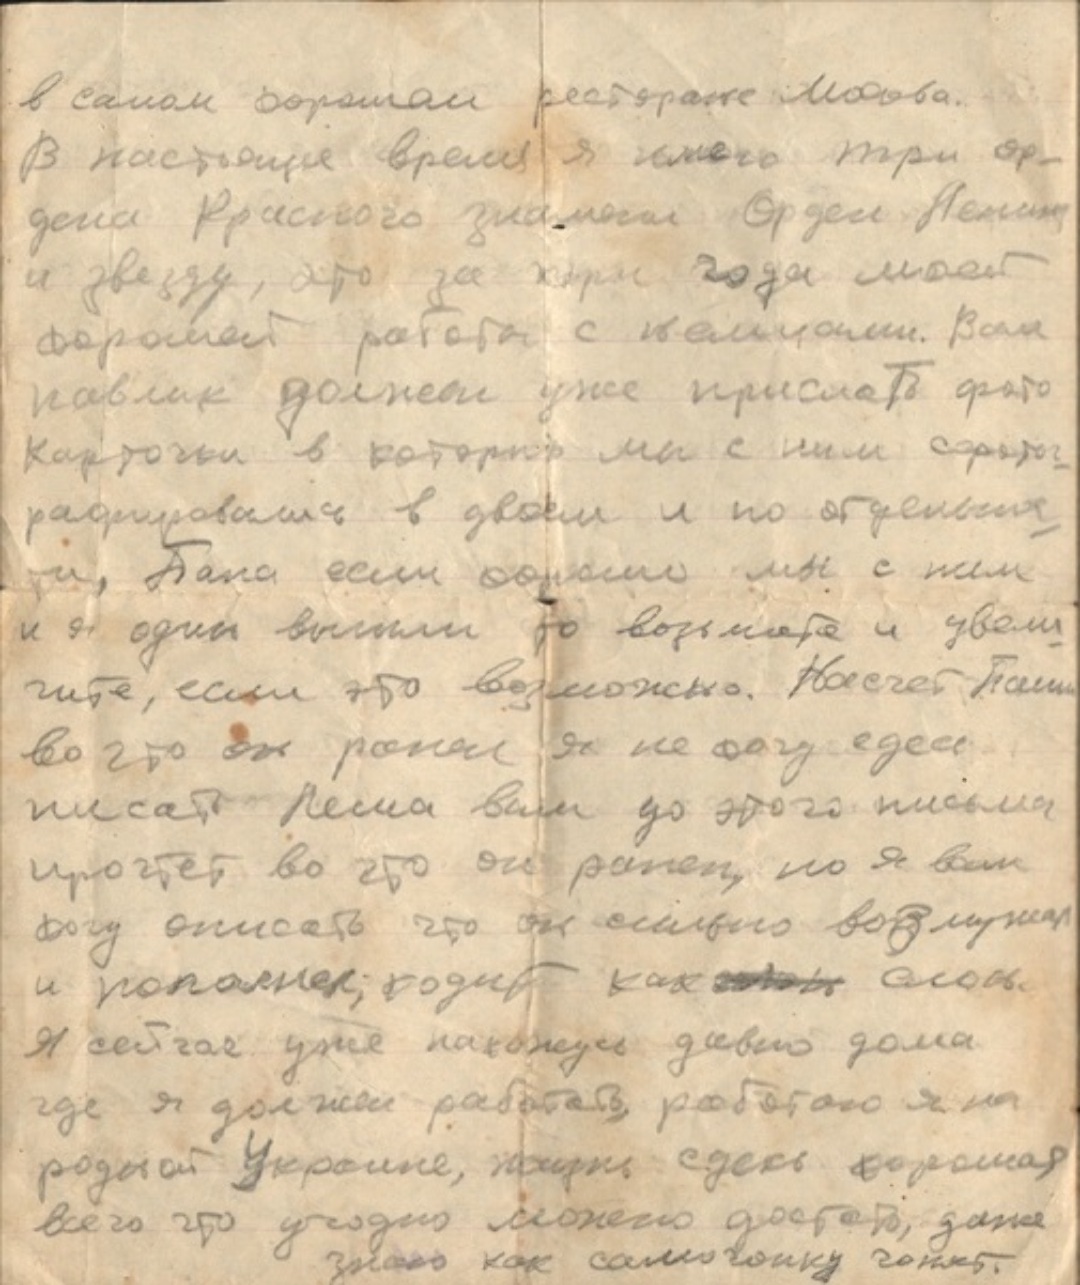 в самом хорошем ресторане Москва.
В настояще время я имею три ор-
дена Красного знамени Орден Ленина
и звезду, это за три года моей
хорошей работы с немцами. Вам
павлик должен уже прислать фото
карточки в которых мы с ним сфотог-
рафировались в двоем и по отдельнос-
ти, Папа если хорошо мы с ним
и я один вышли то возьмите и увели-
чите, если это возможно. Насчет Паши
во что он ранен я не хочу сдесь
писать Леша вам до этого письма
прочтет во что он ранен, но я вам
хочу описать что он сильно возмужал
и пополнел, ходит как слон.
Я сейчас уже нахожусь давно дома
где я должен работать, работаю я на
родной Украине, жизнь сдесь хорошая
всего что угодно можно достать, даже
знаю как самогонку гонят.